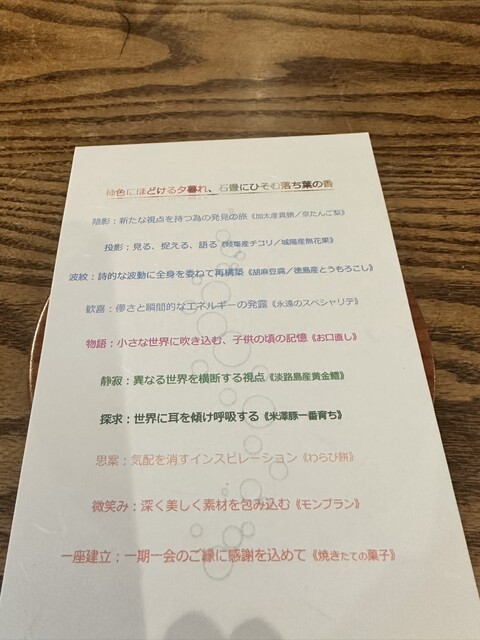 柿色にほどける夕暮れ、石畳にひそむ落ち葉の香
陰影：新たな視点を持つ為の発見の旅《加太産真鯛／京たんご梨》
投影：見る、捉える、語る《岐阜産チコリ／城陽産無花果》
波紋：詩的な波動に全身を委ねて再構築《胡麻豆腐／徳島産とうもろこし》
歓喜：儚さと瞬間的なエネルギーの発露《永遠のスペシャリテ》
物語：小さな世界に吹き込む、子供の頃の記憶《お口直し》
静寂：異なる世界を横断する視点《淡路島産黄金鱧》
探求：世界に耳を傾け呼吸する《米澤豚一番育ち》
思案：気配を消すインスピレーション《わらび餅》
微笑み：深く美しく素材を包み込む《モンブラン》
一座建立：一期一会のご縁に感謝を込めて《焼きたての菓子》